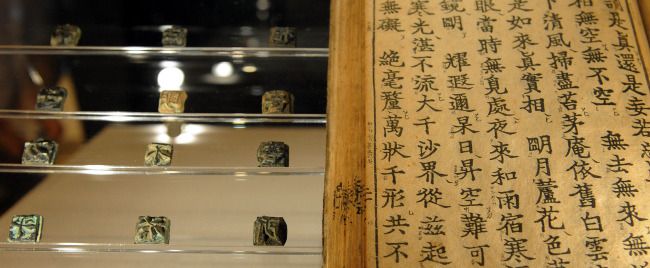 謂是眞還是妄若
相無空無不空 無去無來無
下清風掃盡苔茅庵依舊白雲
是如來眞實相 明月蘆花色
眼當時無覓處夜來和雨宿寒
鏡明 耀遐邇杲日昇空難可
寒光湛不流大千沙界從茲起
無礙 絶毫釐萬狀千形共不